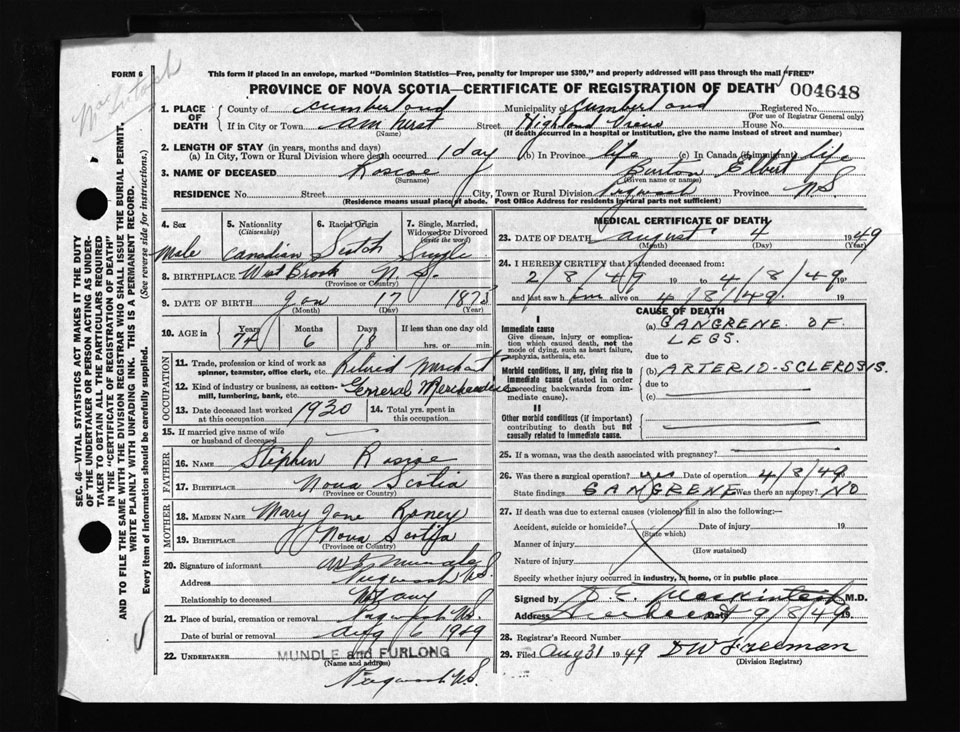 FORM 6
This form if placed in an envelope, marked "Dominion Statistics—Free, penalty for improper use $300," and properly addressed will pass through the mail "FREE"
PROVINCE OF NOVA SCOTIA—CERTIFICATE OF REGISTRATION OF DEATH 004648
1. PLACE OF DEATH
County of Cumberland Municipality of Cumberland Registered No.
(For use of Registrar General only)
If in City or Town Amherst Street Highland View House No.
(Name) (If death occurred in a hospital or institution, give the name instead of street and number)
2. LENGTH OF STAY (in years, months and days)
(a) In City, Town or Rural Division where death occurred 1 day (b) In Province life (c) In Canada (if immigrant) life
3. NAME OF DECEASED Roscoe Burton Elbert
(Surname) (Given name or names)
RESIDENCE No. Street City, Town or Rural Division Pugwash Province N.S.
(Residence means usual place of abode. Post Office Address for residents in rural parts not sufficient)
4. Sex Male
5. Nationality (Citizenship) Canadian
6. Racial Origin Scotch
7. Single, Married, Widowed or Divorced (write the word) Single
8. BIRTHPLACE West Brook N.S.
(Province or Country)
9. DATE OF BIRTH Jan 17 187
(Month) (Day) (Year)
10. AGE in Years Months Days If less than one day old
74 6 18 hrs. or min.
OCCUPATION
11. Trade, profession or kind of work as spinner, teamster, office clerk, etc. Retired Merchant
12. Kind of industry or business, as cotton-mill, lumbering, bank, etc. General Merchandise
13. Date deceased last worked at this occupation 1930 14. Total yrs. spent in this occupation
15. If married give name of wife or husband of deceased
FATHER
16. NAME Stephen Roscoe
17. BIRTHPLACE Nova Scotia
(Province or Country)
MOTHER
18. MAIDEN NAME Mary Jane Roney
19. BIRTHPLACE Nova Scotia
(Province or Country)
20. Signature of informant Mundle
Address Pugwash N.S.
Relationship to deceased
21. Place of burial, cremation or removal Pugwash N.S.
Date of burial or removal Aug 6 1949
22. UNDERTAKER MUNDLE and FURLONG
(Name and address)
Pugwash N.S.
MEDICAL CERTIFICATE OF DEATH
23. DATE OF DEATH August 4 1949
(Month) (Day) (Year)
24. I HEREBY CERTIFY that I attended deceased from:
2/8/49 19 to 4/8/49 19
and last saw him alive on 4/8/49. 19
CAUSE OF DEATH
I
Immediate cause
Give disease, injury or complication which caused death, not the mode of dying, such as heart failure, asphyxia, asthenia, etc.
(a) GANGRENE OF LEGS.
due to
Morbid conditions, if any, giving rise to immediate cause (stated in order proceeding backwards from immediate cause)
(b) ARTERIO-SCLEROSIS.
due to
(c)
II
Other morbid conditions (if important) contributing to death but not causally related to immediate cause.
25. If a woman, was the death associated with pregnancy?
26. Was there a surgical operation? yes Date of operation 4/8/49
State findings GANGRENE Was there an autopsy? NO
27. If death was due to external causes (violence) fill in also the following:—
Accident, suicide or homicide? Date of injury 19
(State which)
Manner of injury
(How sustained)
Nature of injury
Specify whether injury occurred in industry, in home, or in public place
Signed by D. E. MacKintosh M.D.
Address Amherst Date 9/8/49 19
28. Registrar's Record Number
29. Filed Aug 31 1949 DW Freeman
(Division Registrar)
SEC. 46—VITAL STATISTICS ACT MAKES IT THE DUTY
OF THE UNDERTAKER OR PERSON ACTING AS UNDER-
TAKER TO OBTAIN ALL THE PARTICULARS REQUIRED
IN THE "CERTIFICATE OF REGISTRATION OF DEATH"
AND TO FILE THE SAME WITH THE DIVISION REGISTRAR WHO SHALL ISSUE THE BURIAL PERMIT.
WRITE PLAINLY WITH UNFADING INK. THIS IS A PERMANENT RECORD.
Every item of information should be carefully supplied. (See reverse side for instructions.)